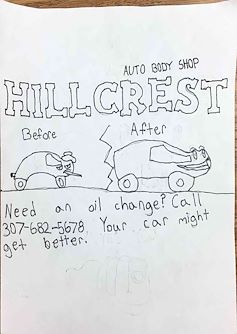 AUTO BODY SHOP
HILLCREST
Before
After
Need an oil change? Call
307-682-5678. Your car might
get better.